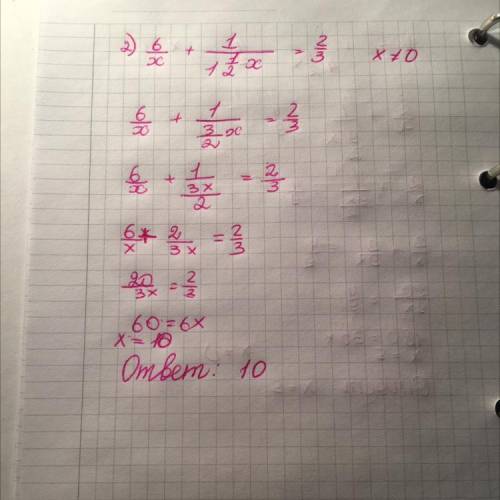 2) 6/x + 1/(1 1/2 x) = 2/3 x ≠ 0
6/x + 1/(3/2 x) = 2/3
6/x + 1/(3x/2) = 2/3
6/x + 2/3x = 2/3
20/3x = 2/3
60 = 6x
x = 10
Ответ: 10